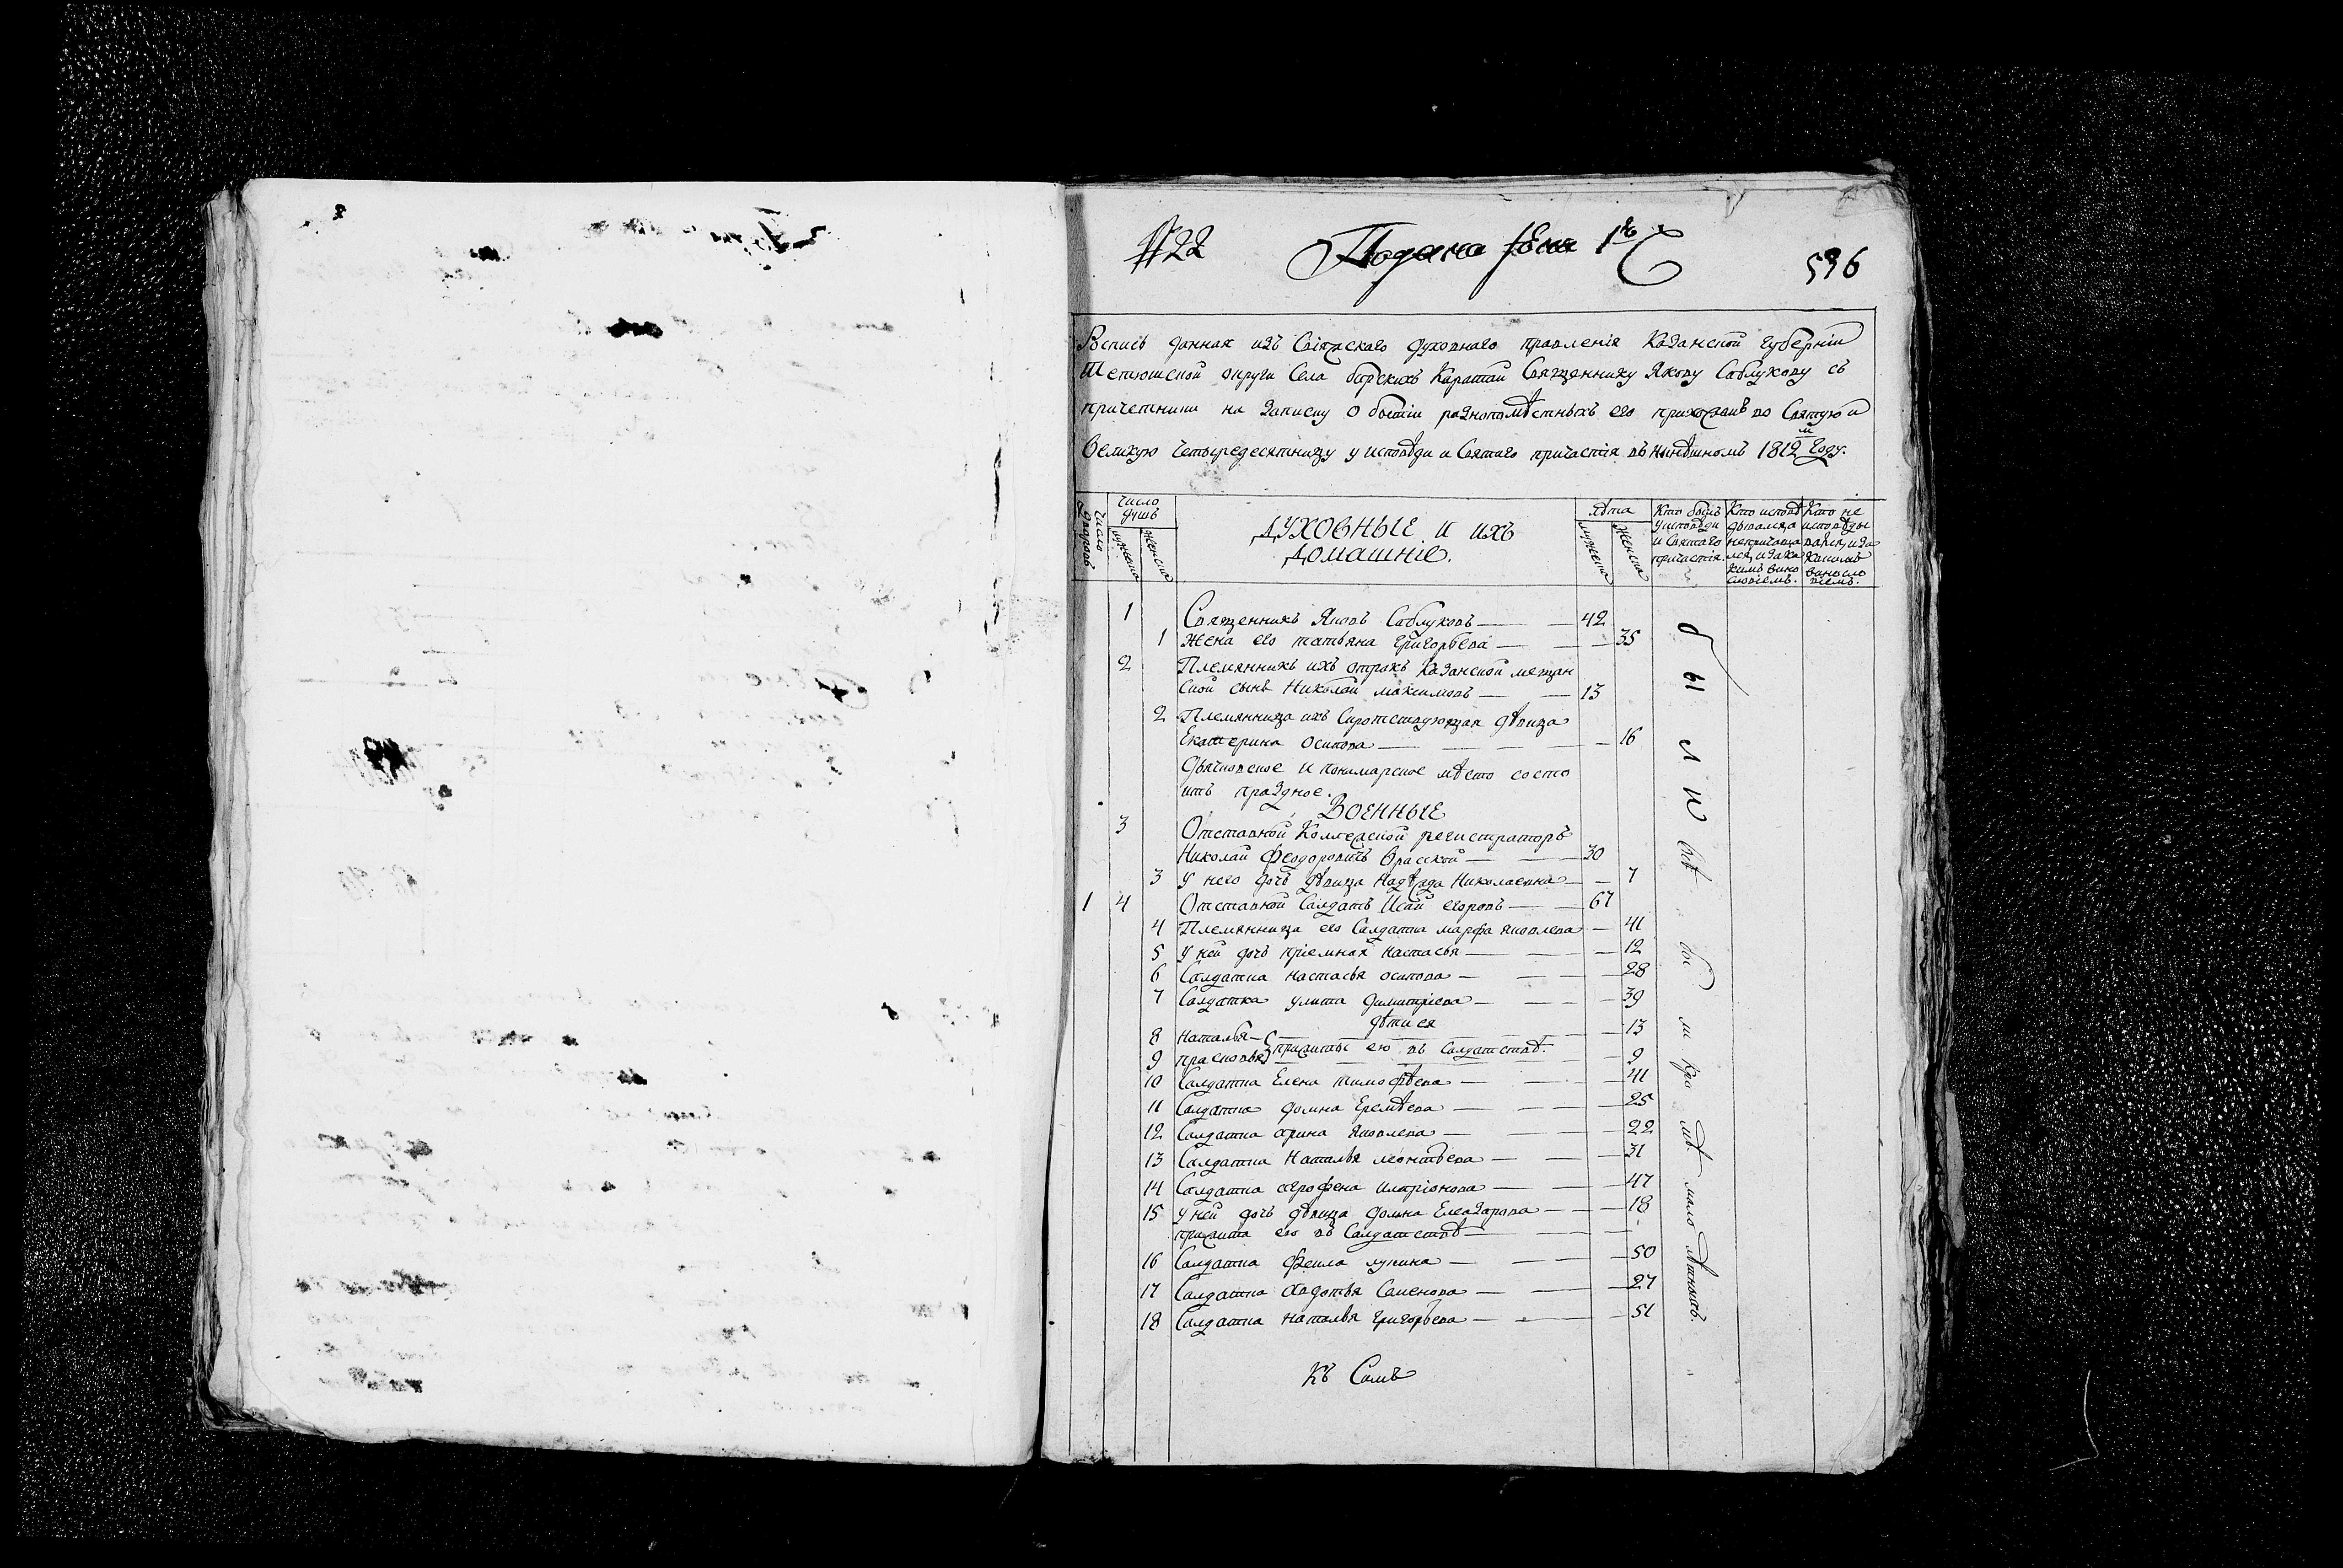 №22 Подана 1е
596
Роспись данная изъ Свіяжскаго духовнаго правленія Казанской губерніи
Тетюшской округи Села барскихъ Каратай Священнику Якову Саблукову съ
причетники на записку о бытіи разнопомѣстныхъ его прихожанъ во Святую и
Великую четыредесятницу у исповѣди и Святаго причастія въ нынѣшномъ 1812м году.
Число дворовъ
Число душъ
мужеска
женска
ДУХОВНЫЕ и ихъ
домашніе.
лѣта
мужеска
женска
Кто былъ
у исповѣди
и Святаго
причастія.
Кто исповѣ
дывался
а непричаща
лся, и за ка
кимъ вино
словіемъ.
Кто не
исповѣды
вался, и за
какимъ
винosло
віемъ.
1 Священникъ Яковъ Саблуковъ — 42
1 Жена его татьяна григорьева — 35
2 Племянникъ ихъ отрокъ казанской мещан
ской сынъ Николай максимовъ — 13
2 Племянница ихъ Сиротствующая дѣвица
Екатерина осипова — 16
Дьячковское и пономарское мѣсто состо
итъ праздное.
ВОЕННЫЕ
3 Отставной Коллежской регистраторъ
Николай феодоровичъ Врасской — 30
3 У него дочь дѣвица Надѣжда Николаевна — 7
1 4 Отставной Салдатъ Исай егоровъ — 67
4 Племянница его Салдатка марфа яковлева — 41
5 У ней дочь пріемная настасья — 12
6 Салдатка настасья осипова — 28
7 Салдатка улита димитріева — 39
дѣти ея
8 Наталья — 13
прижиты ею въ Салдатствѣ.
9 прасковья — 9
10 Салдатка Елена тимофѣева — 41
11 Салдатка домна Еремѣева — 25
12 Салдатка арина яковлева — 22
13 Салдатка Наталья леонтьева — 31
14 Салдатка аграфена иларіонова — 47
15 У ней дочь дѣвица домна Елеазарова — 18
прижита ею въ Салдатствѣ —
16 Салдатка фекла лукина — 50
17 Салдатка авдотья Семенова — 27
18 Салдатка наталья григорьева — 51
были всѣ кромѣ малолѣтныхъ.
къ Семъ